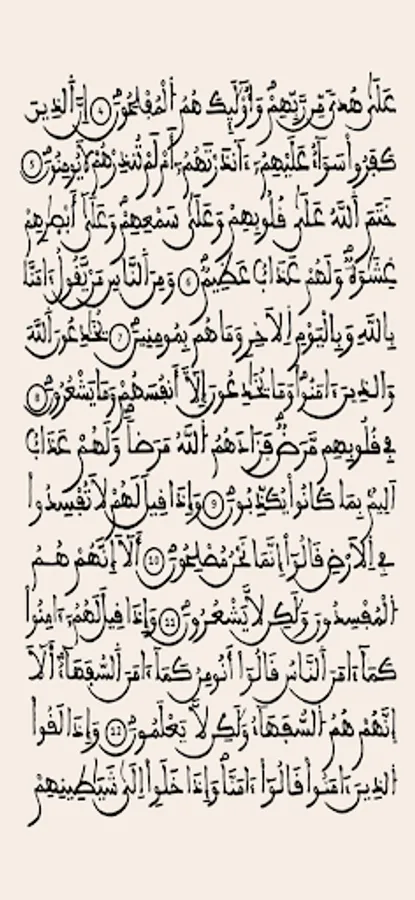 عَلَىٰ هُدىٗ مِّن رَّبِّهِمْ وَأُوْلَٰٓئِكَ هُمُ اُ۬لْمُفْلِحُونَۖ ٤ إِنَّ اَ۬لذِينَ
كَفَرُواْ سَوَآءٌ عَلَيْهِمُۥٓ ءَآنذَرْتَهُمُۥٓ أَمْ لَمْ تُنذِرْهُمْ لَا يُومِنُونَۖ ٥
خَتَمَ اَ۬للَّهُ عَلَىٰ قُلُوبِهِمْ وَعَلَىٰ سَمْعِهِمْ وَعَلَىٰٓ أَبْصٰ۪رِهِمْ
غِشَٰوَةٞ وَلَهُمْ عَذَابٌ عَظِيمٞۖ ٦ وَمِنَ اَ۬لنَّاسِ مَنْ يَّقُولُ ءَامَنَّا
بِاللَّهِ وَبِالْيَوْمِ اِ۬لَاخِرِ وَمَا هُم بِمُومِنِينَۖ ٧ يُخَٰدِعُونَ اَ۬للَّهَ
وَالذِينَ ءَامَنُواْ وَمَا يُخَٰدِعُونَ إِلَّآ أَنفُسَهُمْ وَمَا يَشْعُرُونَۖ ٨
فِے قُلُوبِهِم مَّرَضٞ فَزَادَهُمُ اُ۬للَّهُ مَرَضاٗ وَلَهُمْ عَذَابٌ
اَلِيمُۢ بِمَا كَانُواْ يُكَذِّبُونَۖ ٩ وَإِذَا قِيلَ لَهُمْ لَا تُفْسِدُواْ
فِے اِ۬لَارْضِ قَالُوٓاْ إِنَّمَا نَحْنُ مُصْلِحُونَۖ ١٠ أَلَآ إِنَّهُمْ هُمُ
اُ۬لْمُفْسِدُونَ وَلَٰكِن لَّا يَشْعُرُونَۖ ١١ وَإِذَا قِيلَ لَهُمُۥٓ ءَامِنُواْ
كَمَآ ءَامَنَ اَ۬لنَّاسُ قَالُوٓاْ أَنُومِنُ كَمَآ ءَامَنَ اَ۬لسُّفَهَآءُۖ اَ۬لَآ
إِنَّهُمْ هُمُ اُ۬لسُّفَهَآءُ وَلَٰكِن لَّا يَعْلَمُونَۖ ١٢ وَإِذَا لَقُواْ
اُ۬لذِينَ ءَامَنُواْ قَالُوٓاْ ءَامَنَّا وَإِذَا خَلَوِاْ اِلَىٰ شَيَٰطِينِهِمْ